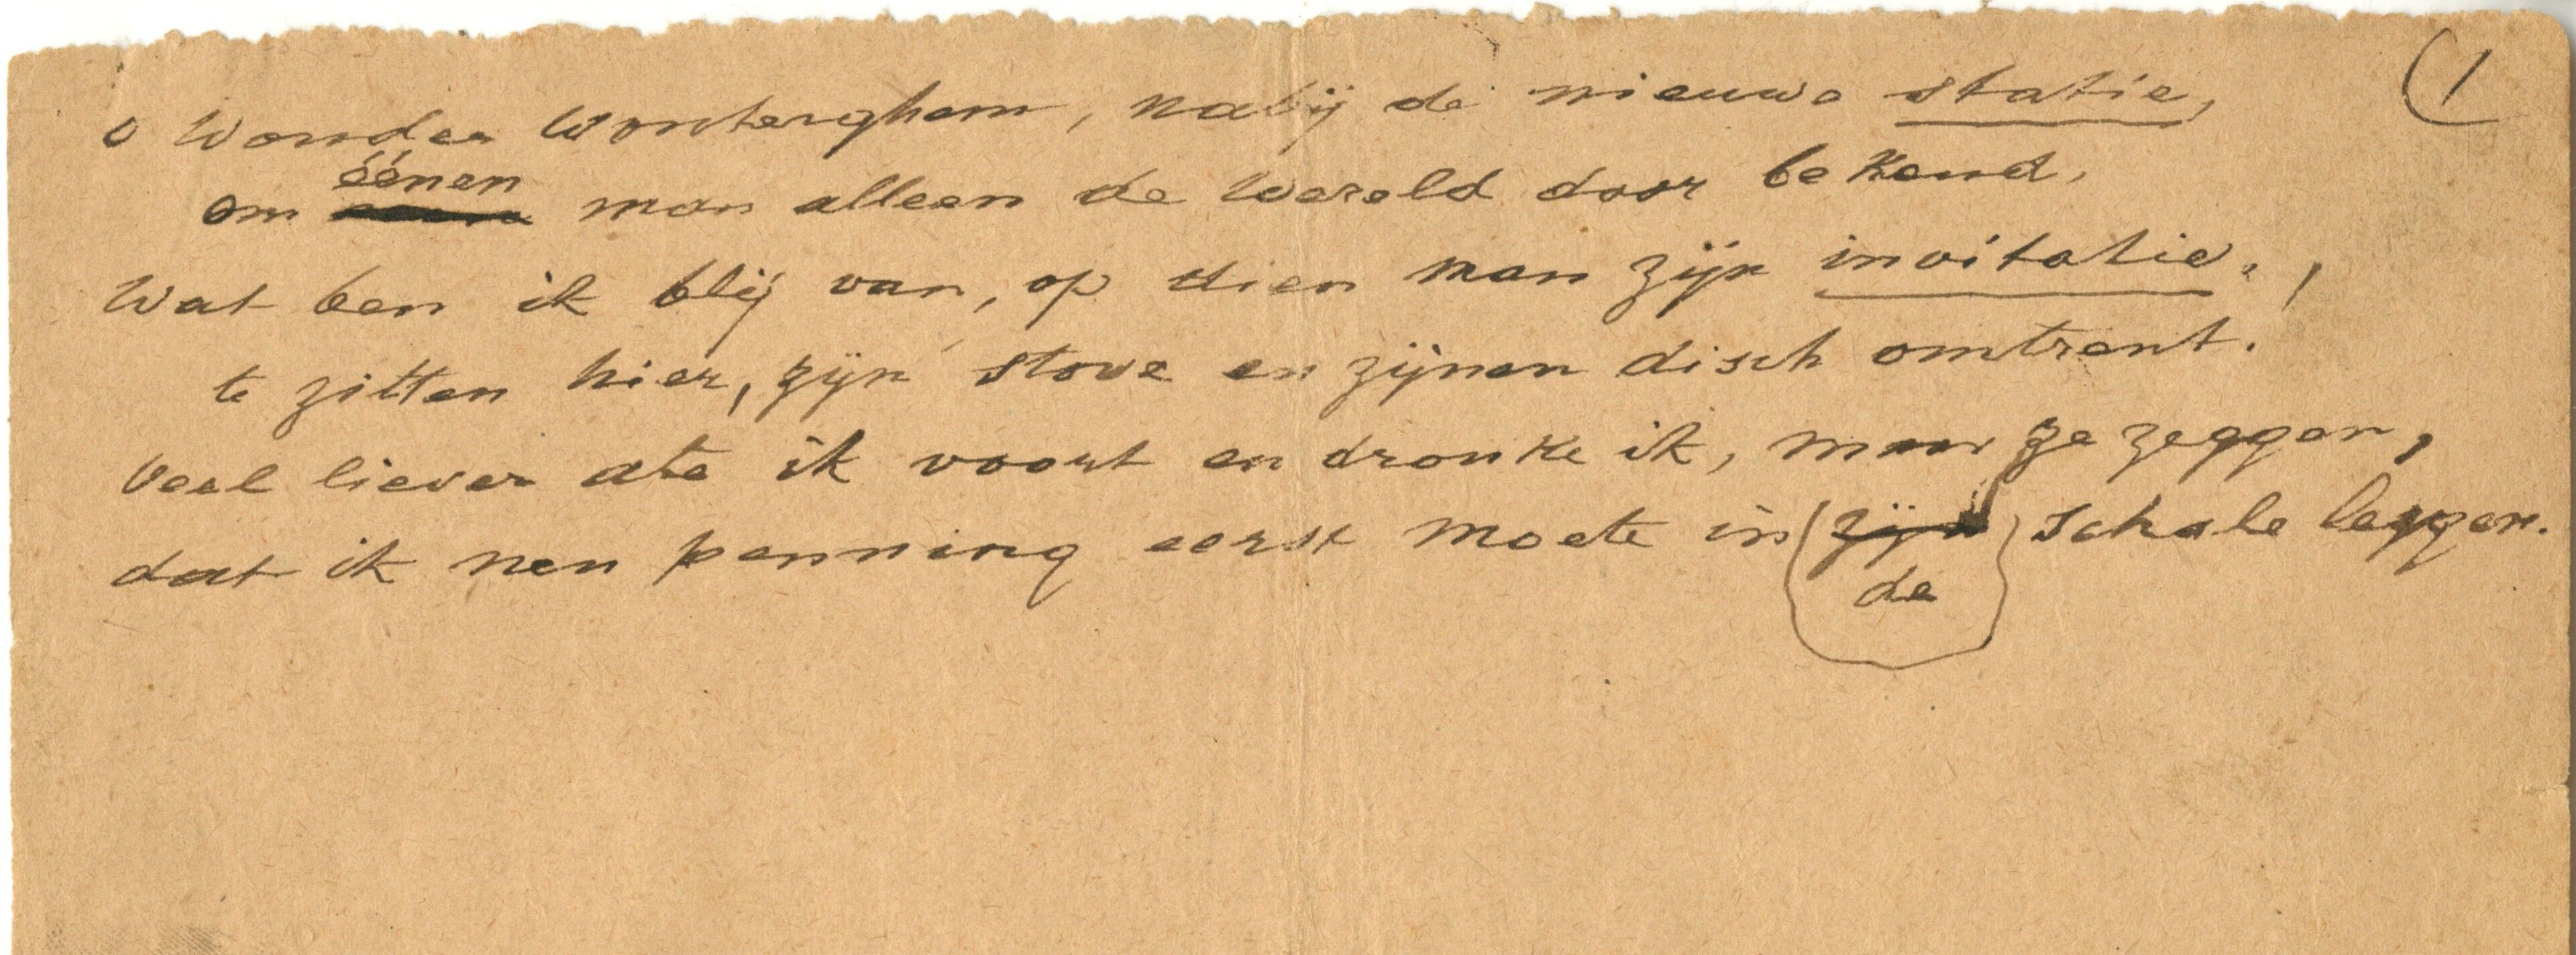 1
o Wonder Wonterghem, nabij de nieuwe statie,
éénen
om man alleen de Wereld door bekend,
Wat ben ik blij van, op dien man zijn invitatie,
te zitten hier, zijn stove en zijnen disch omtrent.
Veel liever ate ik voort en dronke ik, maar ze zeggen,
dat ik nen penning eerst moete in (zijn) schale leggen.
de